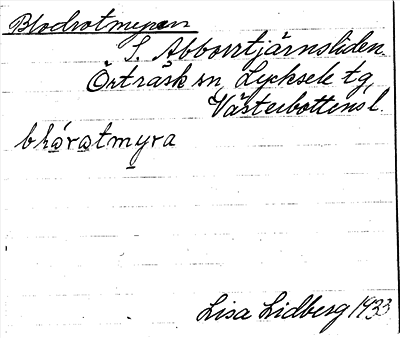 Blodrotmyren
S. Abborrtjärnsliden.
Örträsk sn, Lycksele tg,
Västerbottens l.
Lisa Lidberg 1933